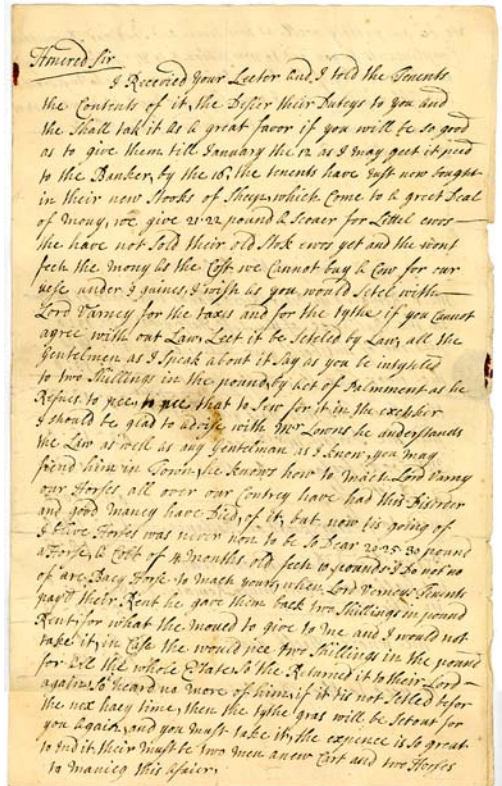 Honered Sir
I Recevied your Leeter and I told the Tenents
the Contents of it, the Desier their Duteys to you and
the Shall tak it as a great favor if you will be so good
as to give them till January the 12 as I may geet it peed
to the Banker, by the 16, the tenents have Just now bought
in their new Stooks of Sheep, which Come to a greet Deal
of Mony, we give 21-22 pound a Scoaer for Littel ewos
the have not Sold their old Stok ewos yet and the wont
fech the Mony as the Cost we Cannot buy a Cow for our
uese under 9 guines, I wish as you would Setel with
Lord Varney for the taxes and for the tythe if you Cannot
agree with out Law, Leet it be Seteled by Law, all the
Gentelmen as I Speak about it Say as you be intyteled
to two Shillings in the pound, by act of Palmment as he
Refues to pee, to pee that to Sew for it in the
I should be glad to advise with Mr Lowns he understands
the Law as well as any Gentelman as I know, you may
fiend him in Town, he knows how to mach Lord Varny
our Horses all over our Contrey have had this Disorder
and good maney have Died, of it, but now tis going of
I Horses was never non to be So Dear 20-25-30 pound
a Horse, a Colt of 4 months old fech 10 pounds I Do not no
of are Baey Horse to mach yours, when Lord Verneys Tenents
pay'd their Rent he gave them back two Shillings in pound
Rent, for what the moued to give to me and I would not
take it, in Case the would pee two Shillings in the pound
for all the whole Estate, So the Returned it to their Lord
again, So heard no more of him, if it tis not Setled befor
the nex haey time, then the tythe gras will be Setout for
you Again, and you must take it, the expence is so great
to ind it, their must be two men a new Cart and two Horses
to manieg this afaier,